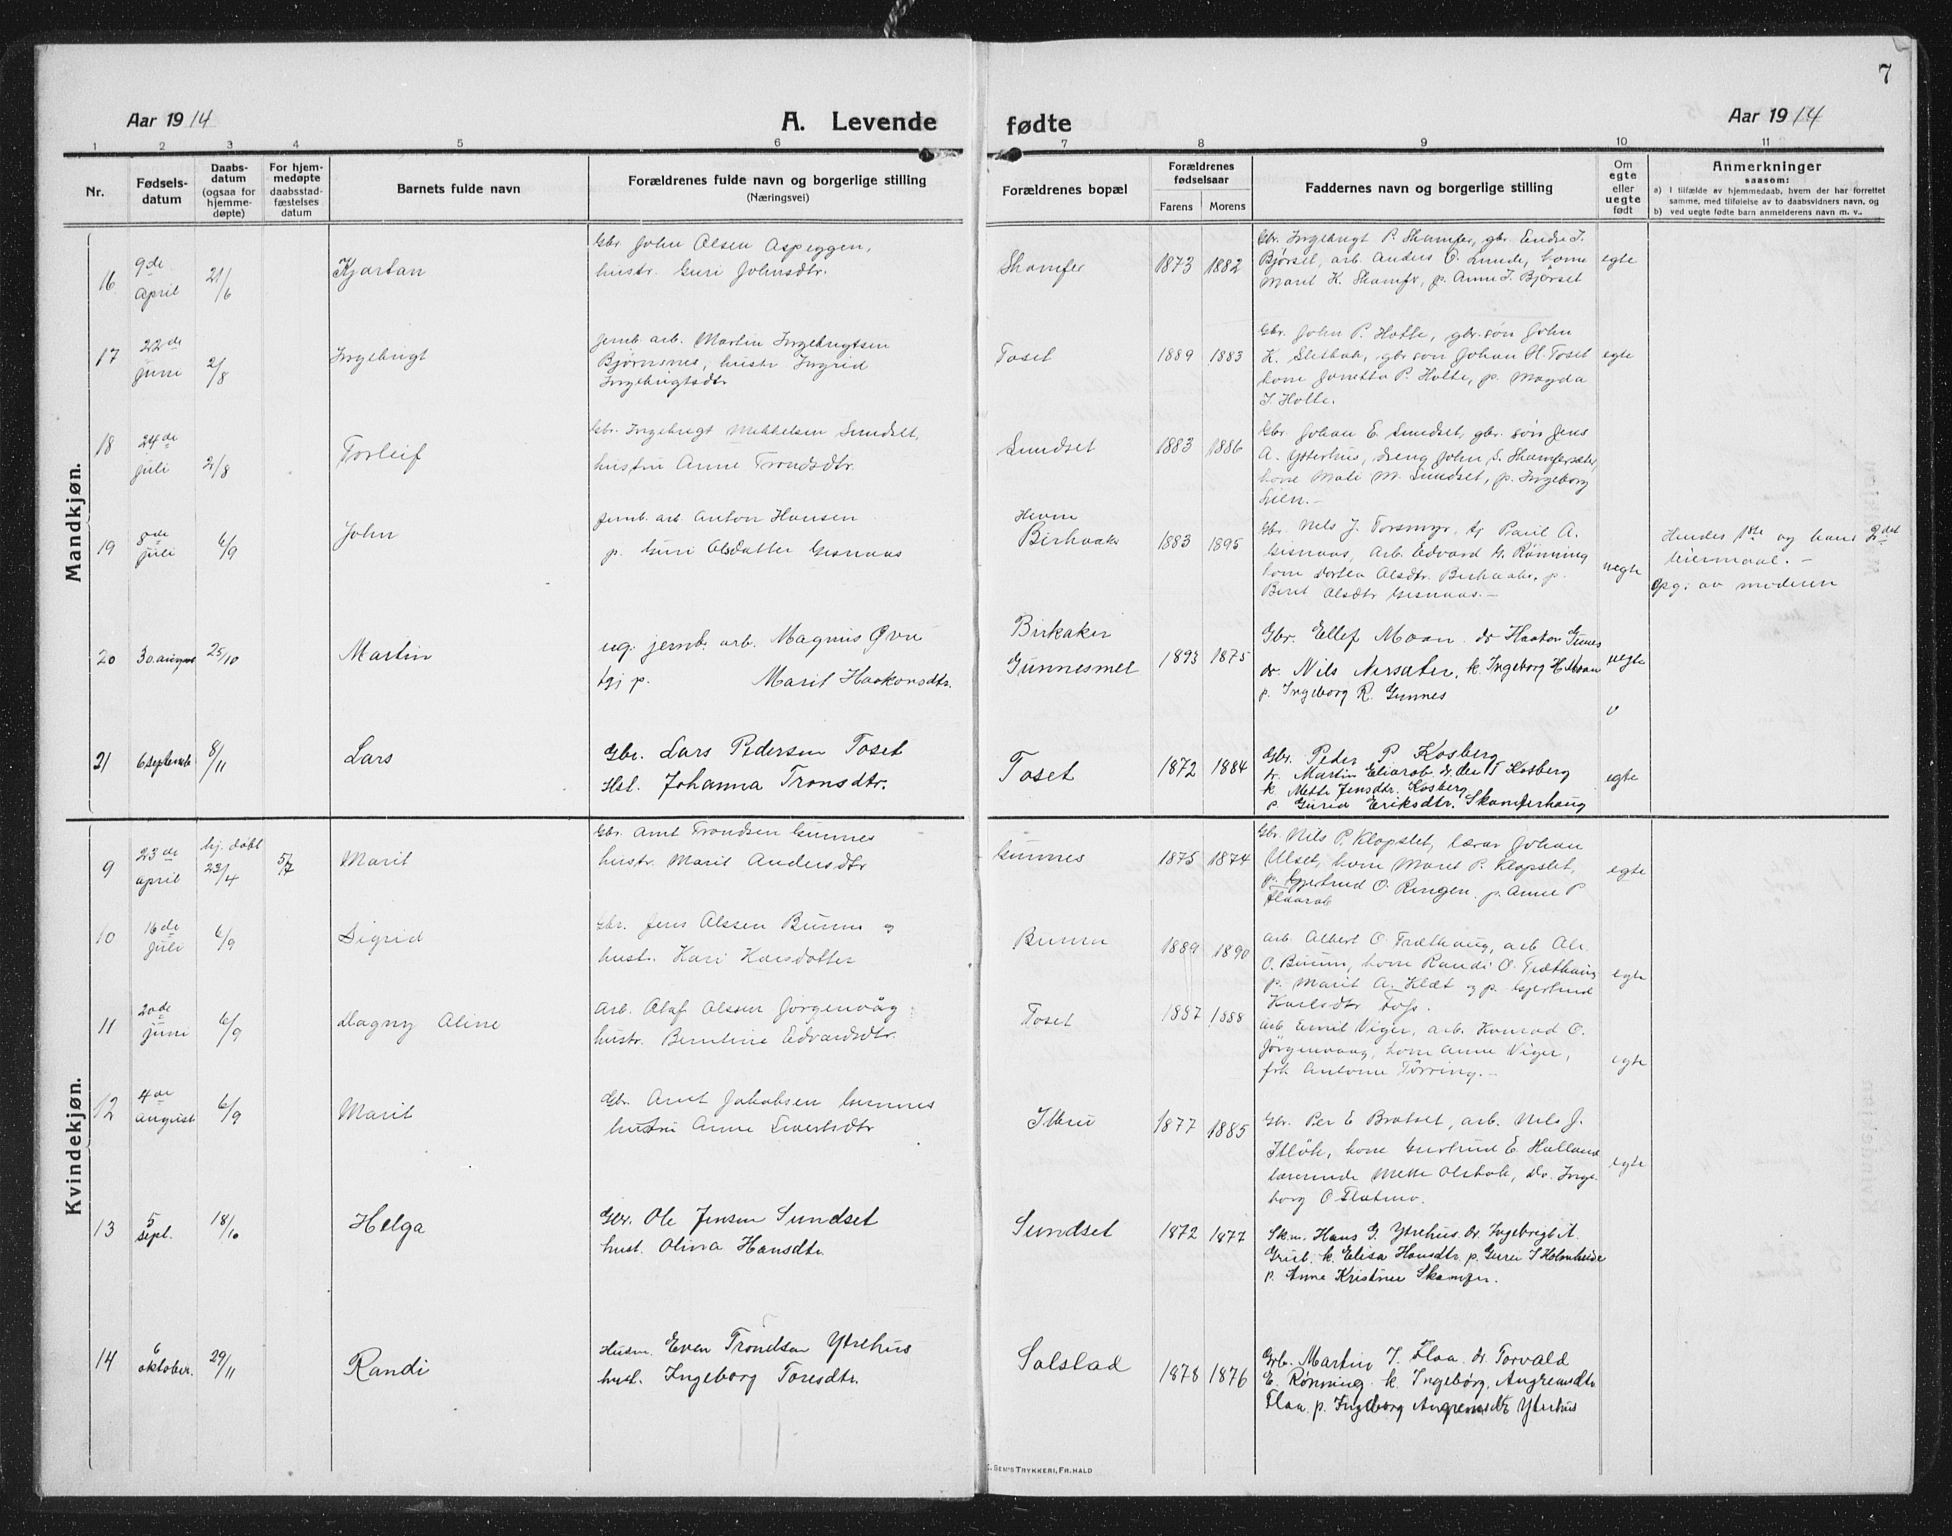 7
Aar 1914
A. Levende fødte
Aar 1914
1 2 3 4 5 6 7 8 9 10 11
Nr.
Fødsels-
datum
Daabs-
datum
(ogsaa for
hjemme-
døpte)
For hjem-
medøpte
daabsstad-
fæstelses
datum
Barnets fulde navn
Forældrenes fulde navn og borgerlige stilling
(Næringsvei)
Forældrenes bopæl
Forældrenes
fødselsaar
Farens Morens
Faddernes navn og borgerlige stilling
Om
egte
eller
uegte
født
Anmerkninger
saasom:
a) I tilfælde av hjemmedaab, hvem der har forrettet
samme, med tilføielse av to daabsvidners navn, og
b) ved uegte fødte barn anmelderens navn m. v.
Mandkjøn.
16
9de
april
21/6
Kjartan
Gbr. John Olsen Aspeggen,
hustr. Guri Johnsdtr.
Skamfer
1873 1882
Gbr. Ingebrigt P. Skamfer, gbr. Endre I.
Bjørset, arb. Anders O. Lunde, kone
Marit K. Skamfer, p. Anne I. Bjørset
egte
17
22de
juni
2/8
Ingebrigt
Jernb. arb. Martin Ingebrigtsen
Bjørnsnes, hustr. Ingrid
Ingebrigtsdtr.
Toset
1889 1883
Gbr. John P. Holte, gbr. søn John
K. Sletbak, gbr. søn Johan H. Toset
kone Jonetta P. Holte, p. Magda
I. Holte.
egte
18
24de
juli
2/8
Torleif
Gbr. Ingebrigt Mekkelsen Sundset,
hustru Anne Trondsdtr.
Sundset
1883 1886
Gbr. Johan E. Sundset, gbr. søn Jens
A. Ytterhus, dreng John S. Skamfersæter,
kone Mali M. Sundset, p. Ingeborg
Lien.-
19
8de
juli
6/9
John
Jernb. arb. Anton Hansen
p. Guri Olsdatter Gisnaas
Hevne
Birkaker
1883 1895
Gbr. Nils J. Torsmyr, tj Paul A.
Gisnaas, Arb. Edvard G. Rønning
kone Dortea Olsdtr. Birkaker, p.
Berit Olsdtr Gisnaas.-
uegte
Hendes 1ste og hans 2det
leiermaal.-
Opg. av moderen
20
30 august
25/10
Martin
ug. jernb. arb. Magnus Øvre
tgj p. Marit Haakonsdtr.
Birkaker
Gunnesmel
1893 1875
Gbr. Ellef Moan. dr. Haakon Gunnes
dr. Nils Nersæter, k. Ingeborg H Moan
p. Ingeborg R. Gunnes
uegte
21
6 septemb
8/11
Lars
Gbr. Lars Pedersen Toset
Hst. Johanna Tronsdtr.
Toset
1872 1884
Gbr. Peder P Kosberg
k. Mette Jensdtr. Kosberg
p. Gurid Eriksdtr. Skamferhaug
egte
Kvindekjøn.
9
23de
april
hj. døbt
23/4
5/7
Marit
Gbr. Arnt Trondsen Gunnes
hustr. Marit Andersdtr
Gunnes
1875 1874
Gbr. Nils P. Klopslet, lærer Johan
Ulset, kone Maret P. Klopslet,
p. Gjertrud O. Ringen, p. Anne P
Flaarab
egte
10
16de
juli
6/9
Sigrid
Gbr. Jens Olssen Buum og
hust. Kari Larsdotter
Buum
1889 1890
arb. Albert O. Træthaug, arb. Ole
O. Buum, kone Randi O. Træthaug
p. Marit A. Klæt og p. Gjertrud
Karlsdtr Foss.
egte
11
20de
juni
6/9
Dagny Aline
Arb. Olaf Olssen Jørgenvåg
hustr. Berntine Edvardsdtr.
Toset
1887 1888
Arb. Emil Viger, arb. Konrad O.
Jørgenvaag, kone Anne Viger,
frk. Antonie Tørring.-
egte
12
4de
august
6/9
Marit
Gbr. Arnt Jakobsen Gunnes
hustru Anne Sivertsdtr
1877 1885
Gbr. Per E Bratset, arb. Nils J.
Illøk, kone Guertrud E. Halland
lærerinde Mette Olsbak, dv. Inge-
borg O Flatmo.
egte
13
5
sept.
18/10
Helga
Gbr. Ole Jensen Sundset
hust. Olina Hansdtr
Sundset
1872 1877
Skm. Hans G. Ytrehus dr. Ingebrigt A.
Grut. k. Elisa Hansdtr p. Guri I Holmheide
p. Anne Kristine Skamfer.
14
6
oktober.
29/11
Randi
Husm. Even Trondsen Ytrehus
hust. Ingeborg Toresdtr.
Solstad
1878 1876
Grb. Martin J. Flaa. dr. Torvald
E. Rønning k. Ingebørg. Angrensdtr
Flaa p. Ingeborg Ytrehus
SEM'S TRYKKERI, FR.HALD